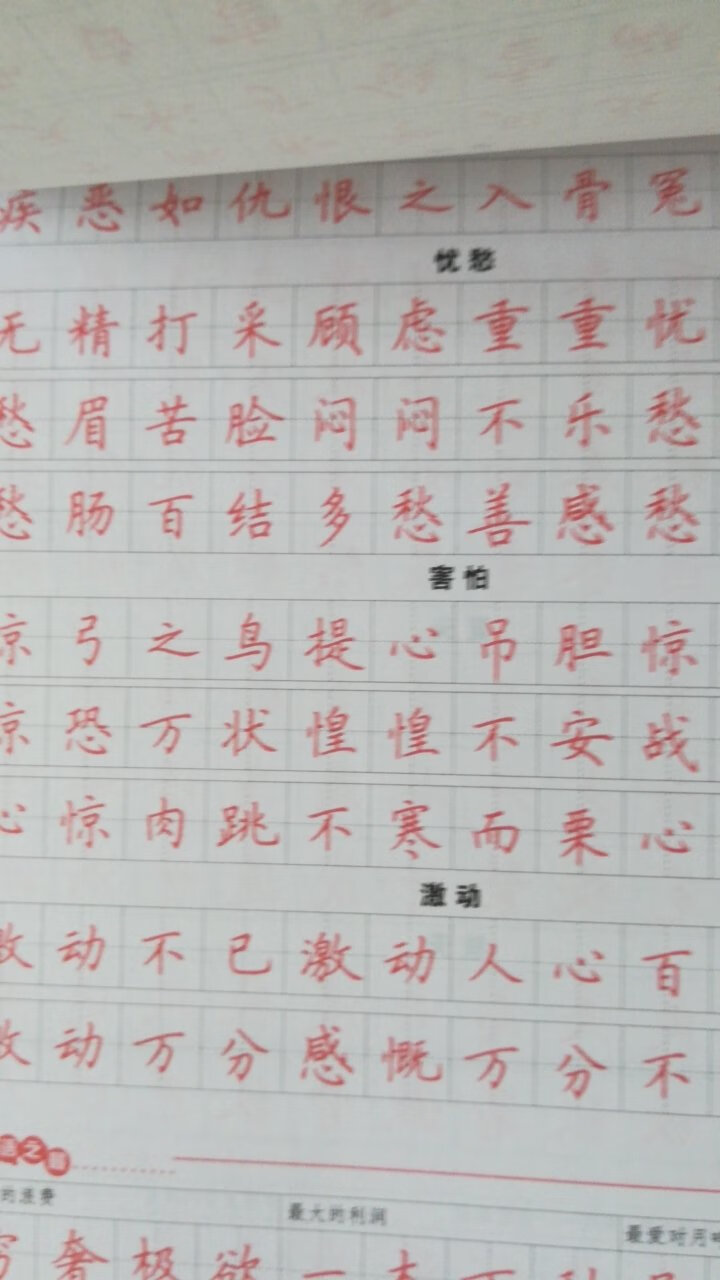 疾恶如仇恨之入骨冤
忧愁
无精打采顾虑重重忧
愁眉苦脸闷闷不乐愁
愁肠百结多愁善感愁
害怕
惊弓之鸟提心吊胆惊
惊恐万状惶惶不安战
心惊肉跳不寒而栗心
激动
激动不已激动人心百
激动万分感慨万分不
之
的浪费
最大的利润
最爱对月
穷奢极欲一本万利